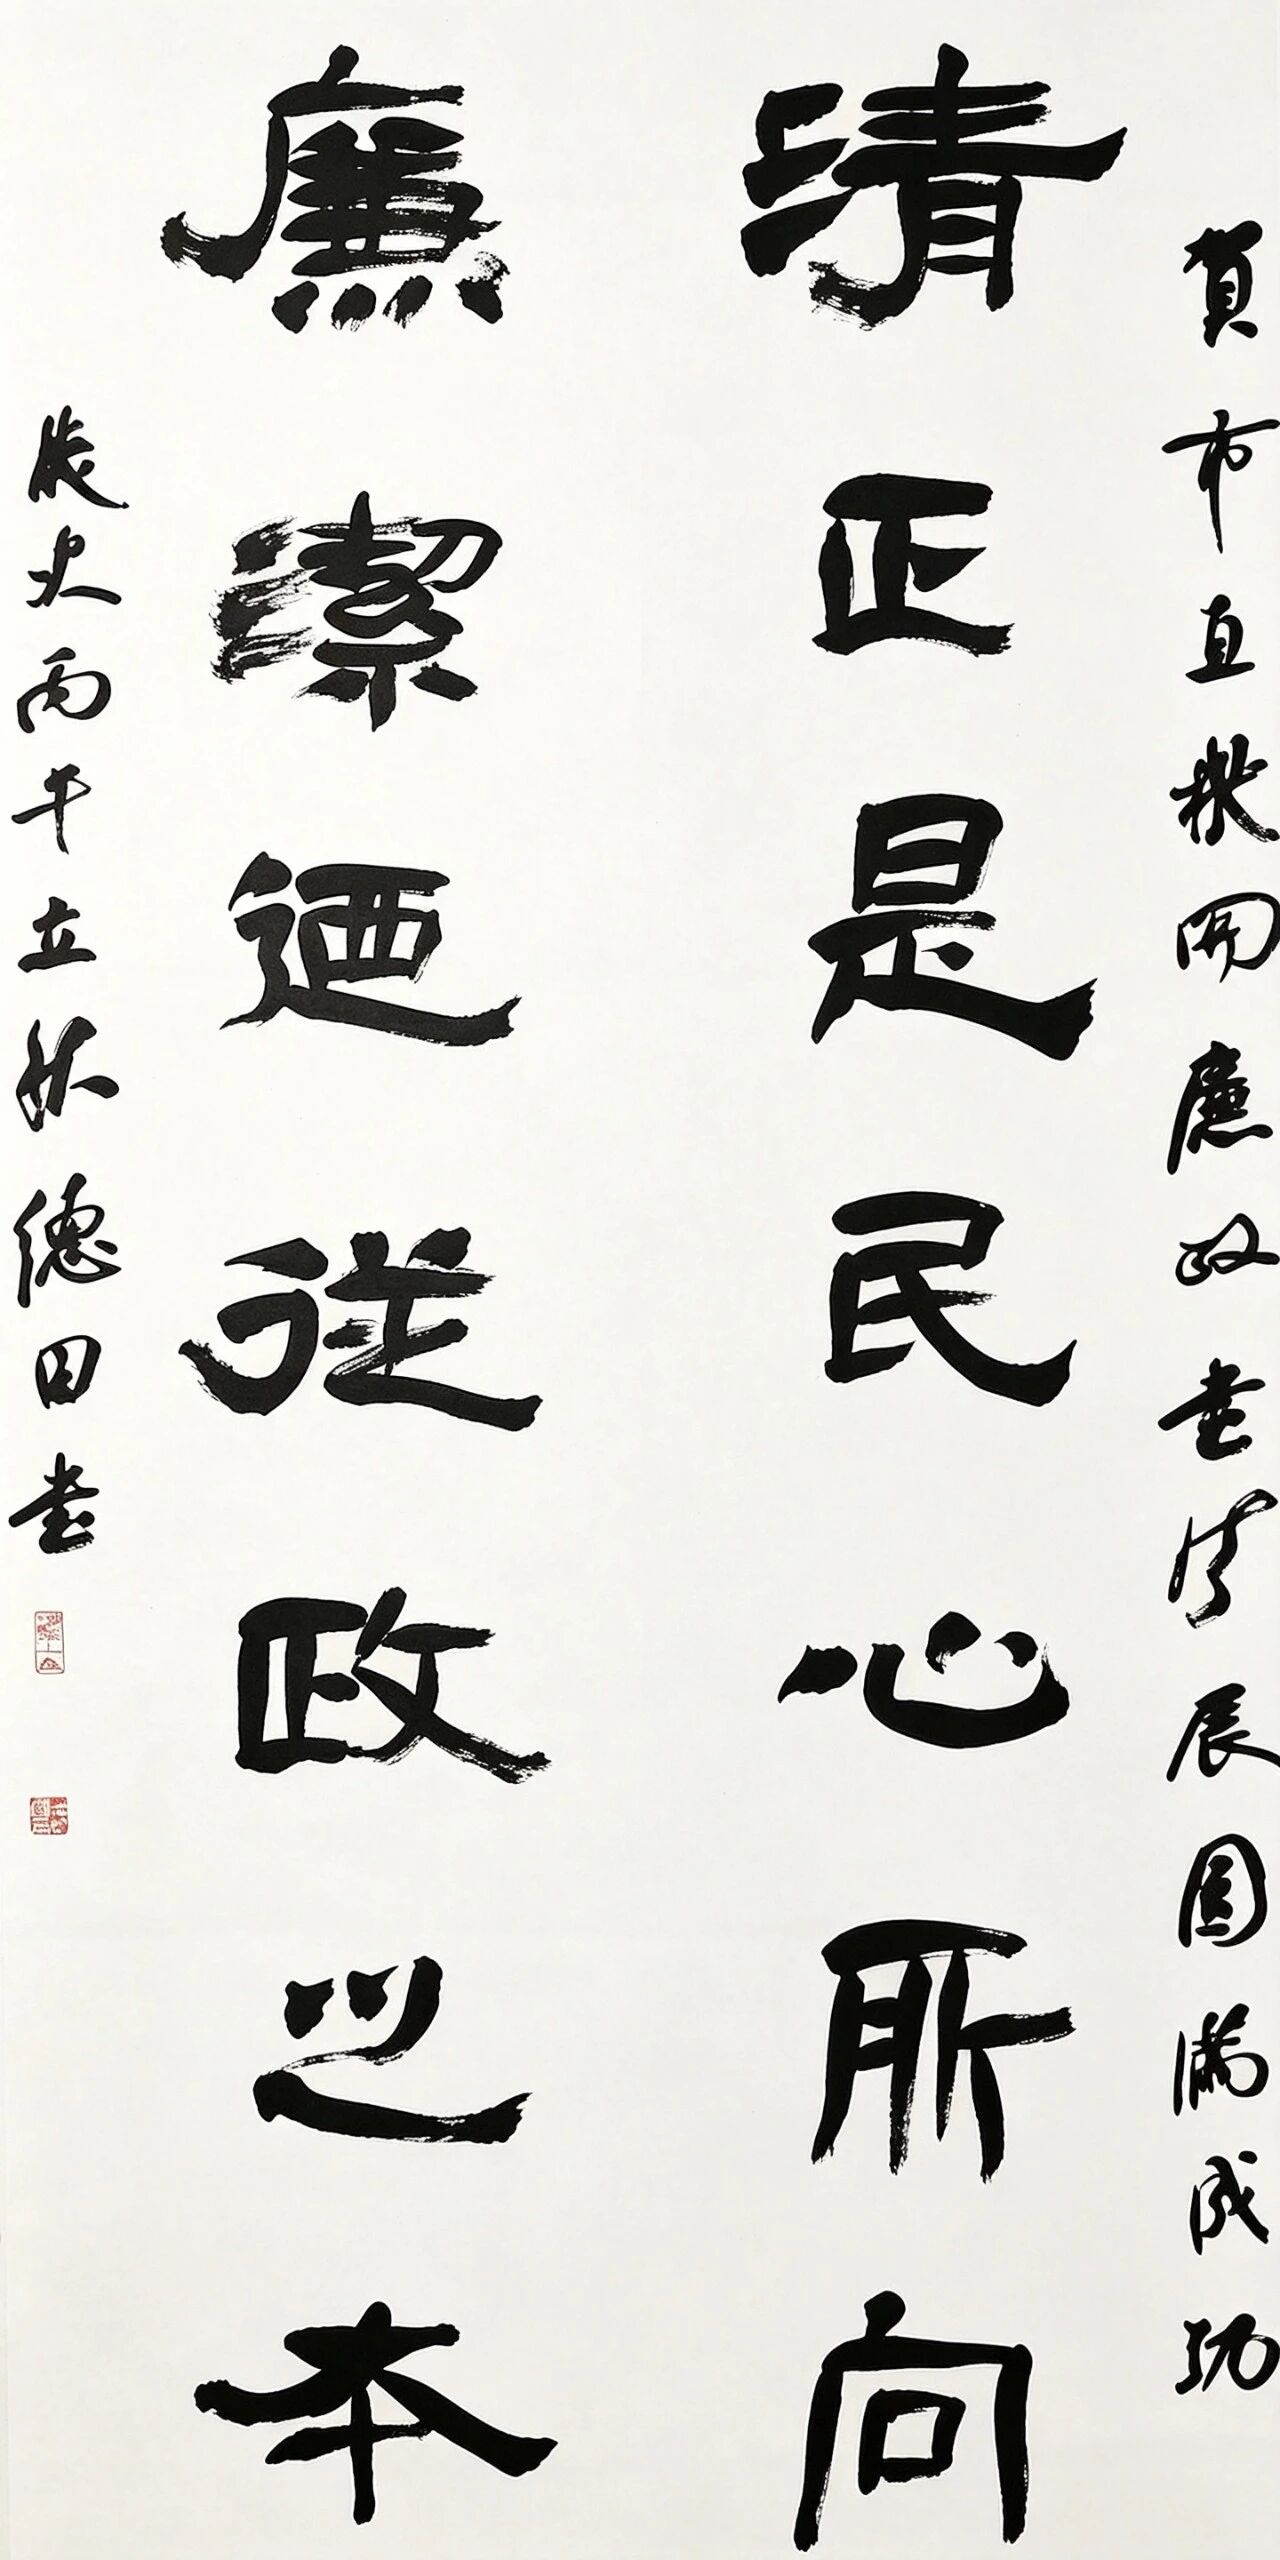 賀市直機關廉政書法展圓滿成功
清正是民心所向
廉潔迺從政之本
歲次丙午立秋德田書